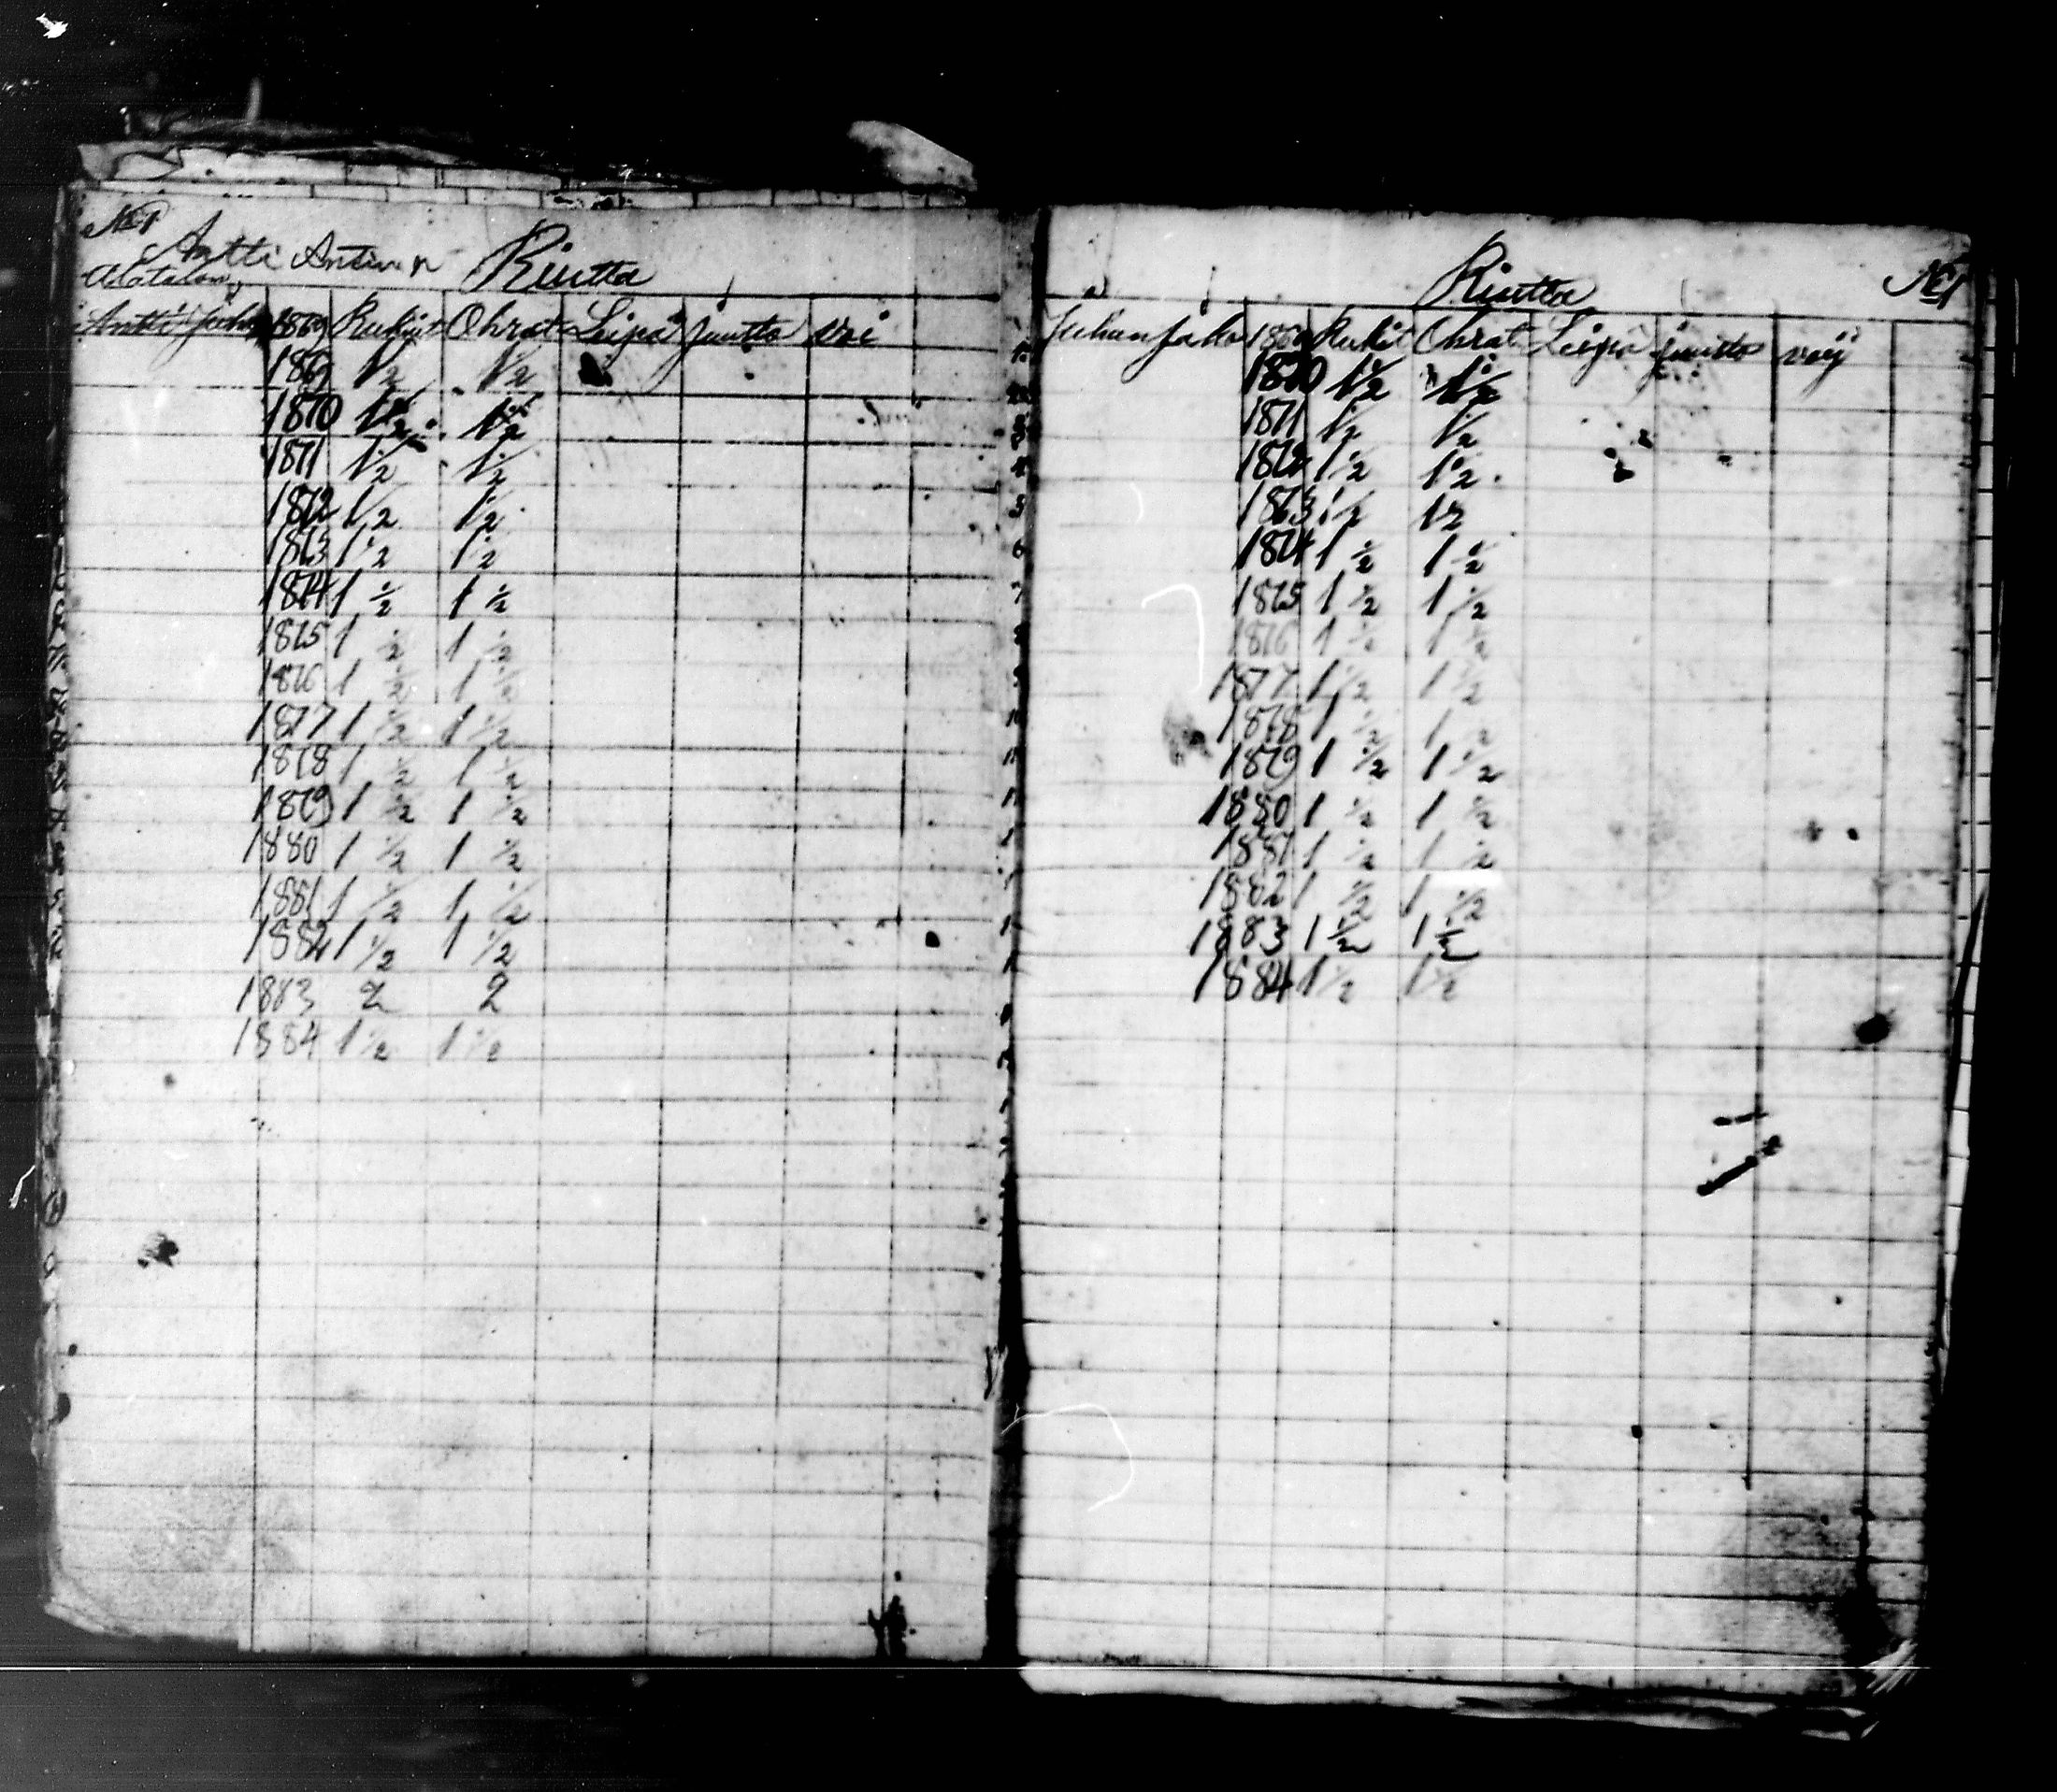 №1
Antti Antinp Riutta
Alatalon
Antti Juho 1869 Rukiit Ohrat Leipä Juusto Voi
1869 1/2 1/2
1870 1 1/2 1 1/2
1871 1/2 1/2
1872 1/2 1/2
1873 1/2 1/2
1874 1 1/2 1 1/2
1875 1 1/2 1 1/2
1876 1 1/2 1 1/2
1877 1 1/2 1 1/2
1878 1 1/2 1 1/2
1879 1 1/2 1 1/2
1880 1 1/2 1 1/2
1881 1 1/2 1 1/2
1882 1 1/2 1 1/2
1883 2 2
1884 1 1/2 1 1/2
Riutta №1
Juhan Jako 1869 Rukit Ohrat Leipä juusto voij
1870 1 1/2 1 1/2
1871 1/2 1/2
1872 1/2 1/2
1873 1/2 1/2
1874 1 1/2 1 1/2
1875 1 1/2 1 1/2
1876 1 1/2 1 1/2
1877 1 1/2 1 1/2
1878 1 1/2 1 1/2
1879 1 1/2 1 1/2
1880 1 1/2 1 1/2
1881 1 1/2 1 1/2
1882 1 1/2 1 1/2
1883 1 1/2 1 1/2
1884 1 1/2 1 1/2